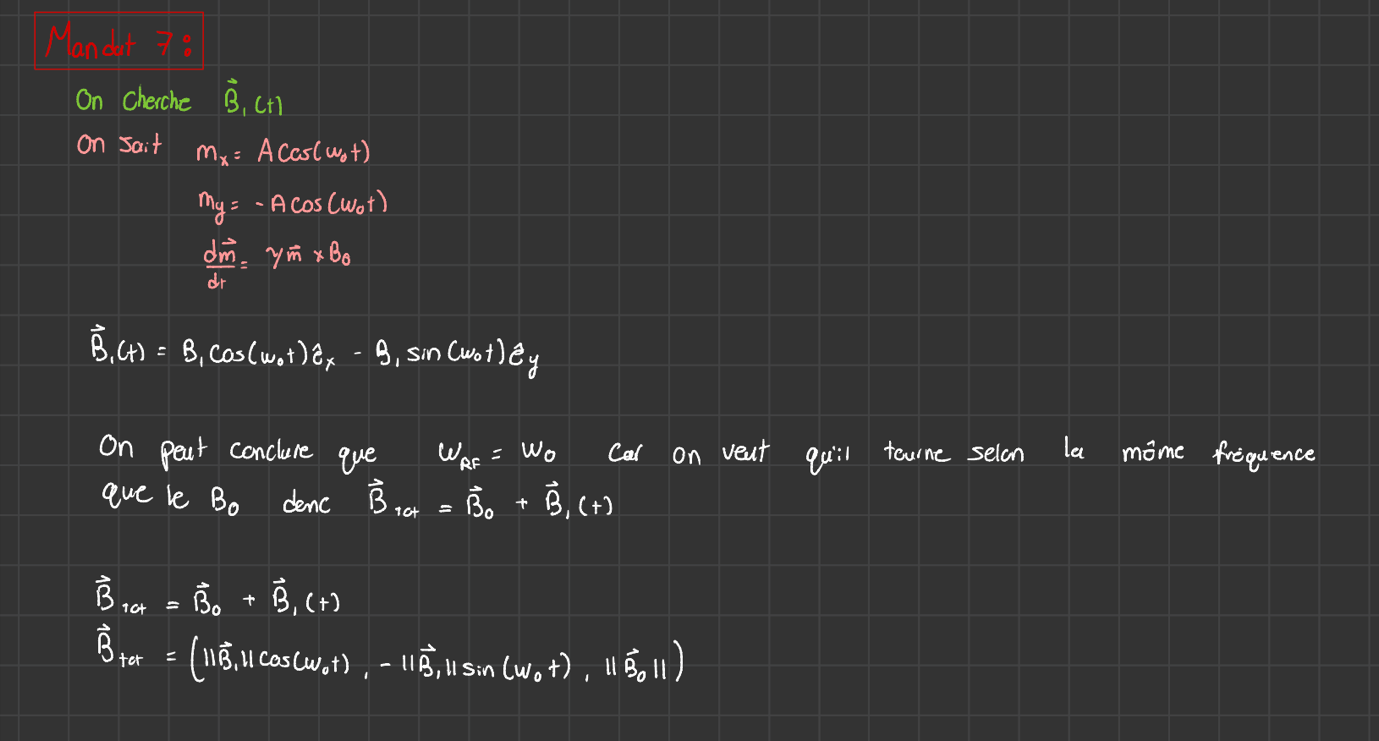 Mandat 7:
On cherche B⃗₁(t)
On sait mₓ = A cos(ω₀t)
m_y = -A cos(ω₀t)
dm⃗/dt = γm⃗ × B₀
B⃗₁(t) = B₁ cos(ω₀t) êₓ - B₁ sin(ω₀t) ê_y
On peut conclure que ω_RF = ω₀ car on veut qu'il tourne selon la même fréquence
que le B₀ donc B⃗_tot = B⃗₀ + B⃗₁(t)
B⃗_tot = B⃗₀ + B⃗₁(t)
B⃗_tot = (||B⃗₁|| cos(ω₀t), -||B⃗₁|| sin(ω₀t), ||B⃗₀||)